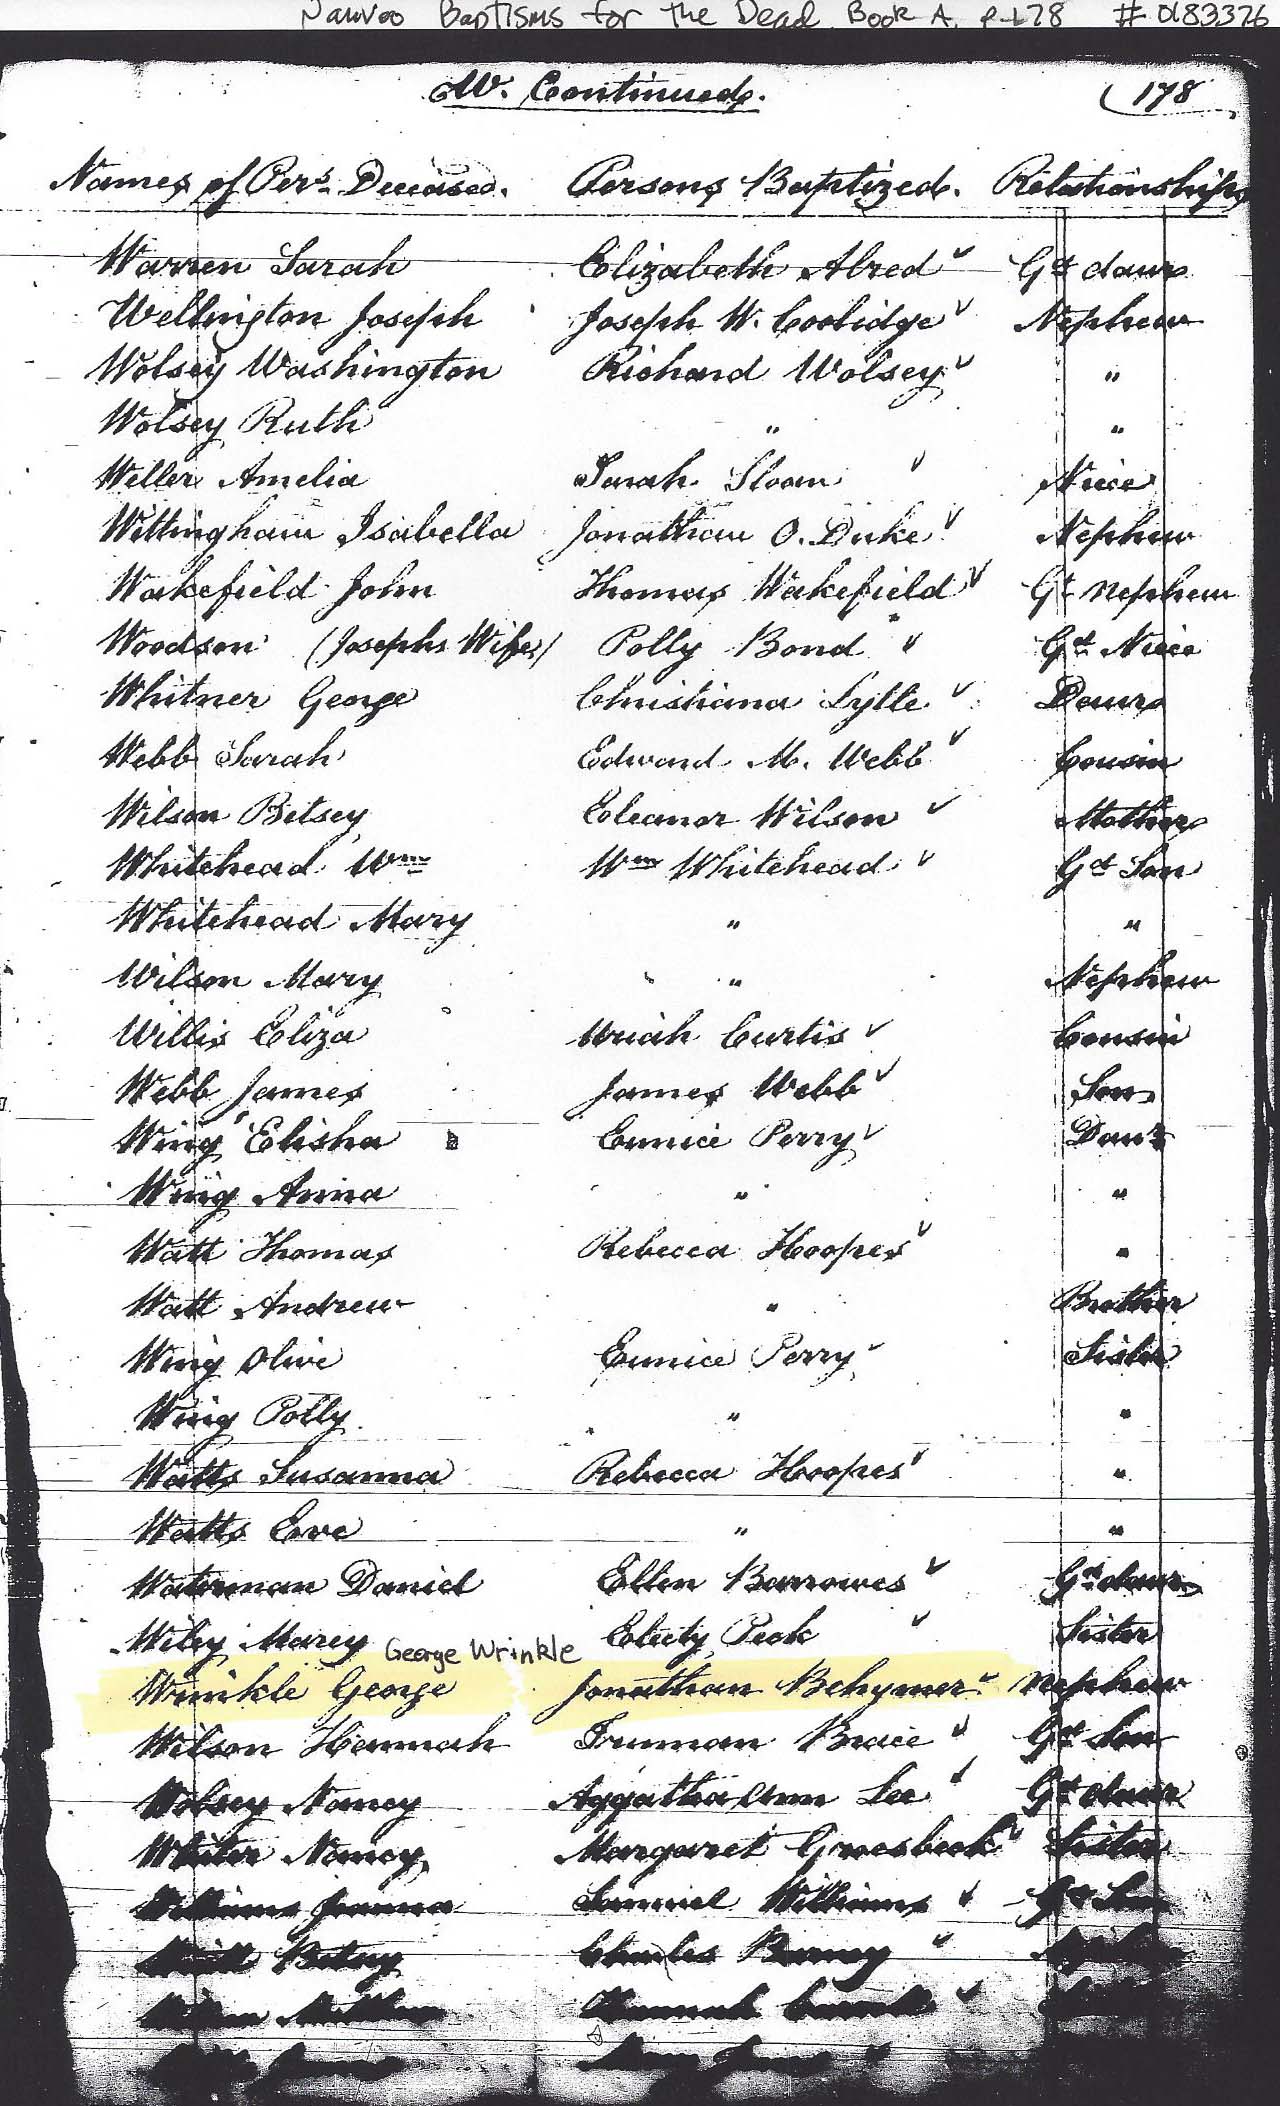 Nauvoo Baptisms for the Dead Book A, p. 178 # 0183376
W. Continued. 178
Names of Pers. Deceased. Persons Baptized. Relationships
Warren Sarah Elizabeth Alred Gd daur
Wellington Joseph Joseph W. Coolidge Nephew
Wolsey Washington Richard Wolsey "
Wolsey Ruth " "
Weller Amelia Sarah Sloan Niece
Wittingham Isabella Jonathan O. Duke Nephew
Wakefield John Thomas Wakefield Gt Nephew
Woodson (Josephs Wife) Polly Bond Gt Niece
Whitner George Christiana Lytle Daur
Webb Sarah Edward M. Webb Cousin
Wilson Betsey Eleanor Wilson Mother
Whitehead Wm Wm Whitehead Gd Son
Whitehead Mary " "
Wilson Mary " Nephew
Willis Eliza Uriah Curtis Cousin
Webb James James Webb Son
Wing Elisha Eunice Perry Daur
Wing Anna " "
Watt Thomas Rebecca Hoopes "
Watt Andrew " Brother
Wing Olive Eunice Perry Sister
Wing Polly " "
Watts Susanna Rebecca Hoopes "
Watts Eve " "
Waterman Daniel Ellen Barrowes Gd daur
Wiley Marcy Electy Peck Sister
George Wrinkle
Wrinkle George Jonathan Behymer Nephew
Wilson Hannah Truman Brace Gd Son
Wolsey Nancy Aggatha Ann Lee Gd daur
Nancy Margaret Groesbeck Sister
Williams Joanna Samuel Williams Gd Son
Betsey Charles
Hannah